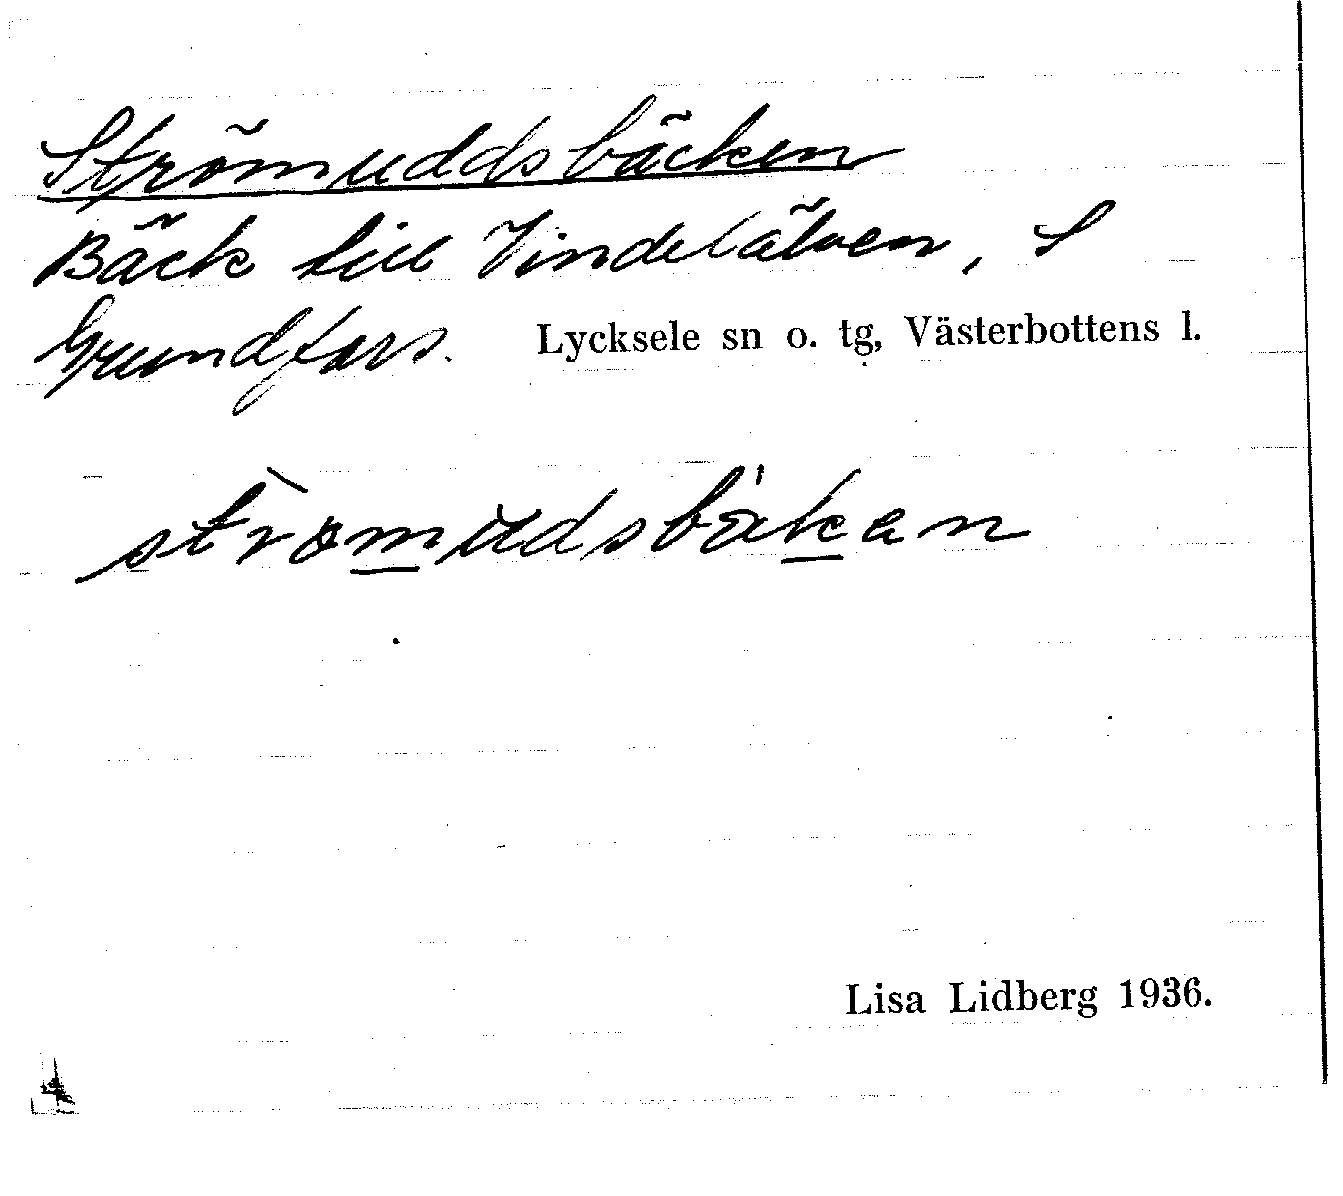 Strömuddsbäcken
Bäck till Vindelälven, S
Grundfors. Lycksele sn o. tg, Västerbottens l.
Lisa Lidberg 1936.